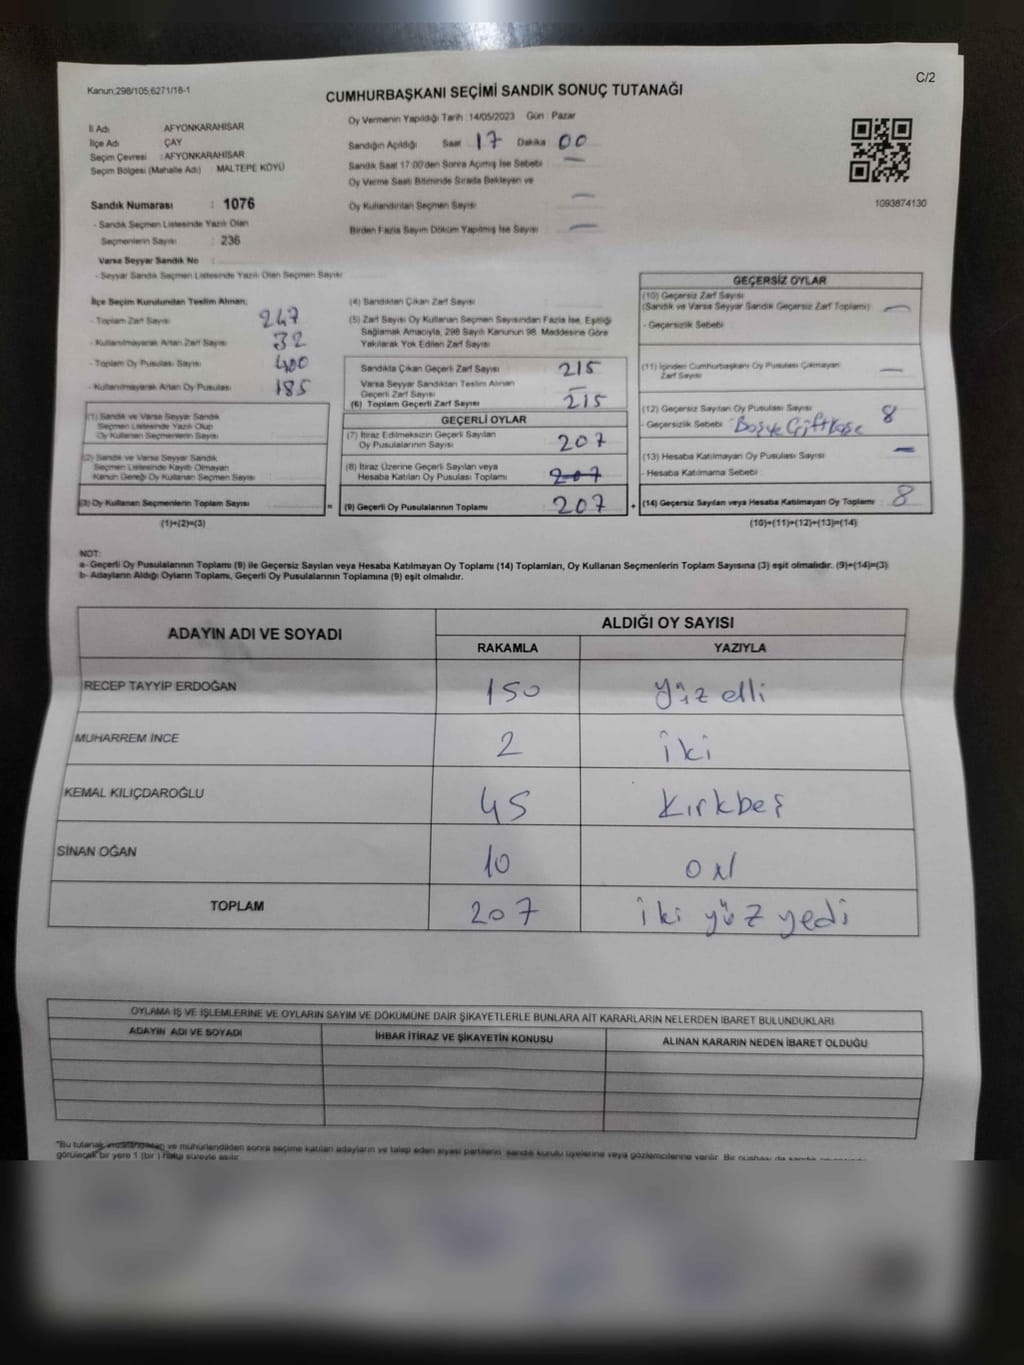 C/2
Kanun;298/105;6271/18-1
CUMHURBAŞKANI SEÇİMİ SANDIK SONUÇ TUTANAĞI
İl Adı : AFYONKARAHİSAR
İlçe Adı : ÇAY
Seçim Çevresi : AFYONKARAHİSAR
Seçim Bölgesi (Mahalle Adı) : MALTEPE KÖYÜ
Sandık Numarası : 1076
- Sandık Seçmen Listesinde Yazılı Olan
Seçmenlerin Sayısı : 236
Varsa Seyyar Sandık No :
- Seyyar Sandık Seçmen Listesinde Yazılı Olan Seçmen Sayısı
Oy Vermenin Yapıldığı Tarih : 14/05/2023 Gün : Pazar
Sandığın Açıldığı Saat 17 Dakika 00
Sandık Saat 17:00'den Sonra Açılmış İse Sebebi : —
Oy Verme Saati Bitiminde Sırada Bekleyen ve
Oy Kullandırılan Seçmen Sayısı : —
Birden Fazla Sayım Döküm Yapılmış İse Sayısı : —
1093874130
İlçe Seçim Kurulundan Teslim Alınan;
- Toplam Zarf Sayısı : 247
- Kullanılmayarak Artan Zarf Sayısı : 32
- Toplam Oy Pusulası Sayısı : 400
- Kullanılmayarak Artan Oy Pusulası : 185
(1) Sandık ve Varsa Seyyar Sandık
Seçmen Listesinde Yazılı Olup
Oy Kullanan Seçmenlerin Sayısı
(2) Sandık ve Varsa Seyyar Sandık
Seçmen Listesinde Kayıtlı Olmayan
Kanun Gereği Oy Kullanan Seçmen Sayısı
(3) Oy Kullanan Seçmenlerin Toplam Sayısı =
(1)+(2)=(3)
(4) Sandıktan Çıkan Zarf Sayısı :
(5) Zarf Sayısı Oy Kullanan Seçmen Sayısından Fazla İse, Eşitliği
Sağlamak Amacıyla, 298 Sayılı Kanunun 98. Maddesine Göre
Yakılarak Yok Edilen Zarf Sayısı
Sandıkta Çıkan Geçerli Zarf Sayısı 215
Varsa Seyyar Sandıktan Teslim Alınan
Geçerli Zarf Sayısı —
(6) Toplam Geçerli Zarf Sayısı 215
GEÇERLİ OYLAR
(7) İtiraz Edilmeksizin Geçerli Sayılan
Oy Pusulalarının Sayısı 207
(8) İtiraz Üzerine Geçerli Sayılan veya
Hesaba Katılan Oy Pusulası Toplamı 207
(9) Geçerli Oy Pusulalarının Toplamı 207 +
GEÇERSİZ OYLAR
(10) Geçersiz Zarf Sayısı
(Sandık ve Varsa Seyyar Sandık Geçersiz Zarf Toplamı) : —
- Geçersizlik Sebebi :
(11) İçinden Cumhurbaşkanı Oy Pusulası Çıkmayan
Zarf Sayısı —
(12) Geçersiz Sayılan Oy Pusulası Sayısı : 8
- Geçersizlik Sebebi : Boş ve Çift Kaşe
(13) Hesaba Katılmayan Oy Pusulası Sayısı : —
- Hesaba Katılmama Sebebi :
(14) Geçersiz Sayılan veya Hesaba Katılmayan Oy Toplamı 8
(10)+(11)+(12)+(13)=(14)
NOT:
a- Geçerli Oy Pusulalarının Toplamı (9) ile Geçersiz Sayılan veya Hesaba Katılmayan Oy Toplamı (14) Toplamları, Oy Kullanan Seçmenlerin Toplam Sayısına (3) eşit olmalıdır. (9)+(14)=(3)
b- Adayların Aldığı Oyların Toplamı, Geçerli Oy Pusulalarının Toplamına (9) eşit olmalıdır.
ADAYIN ADI VE SOYADI ALDIĞI OY SAYISI
RAKAMLA YAZIYLA
RECEP TAYYİP ERDOĞAN 150 yüz elli
MUHARREM İNCE 2 iki
KEMAL KILIÇDAROĞLU 45 Kırkbeş
SİNAN OĞAN 10 on
TOPLAM 207 iki yüz yedi
OYLAMA İŞ VE İŞLEMLERİNE VE OYLARIN SAYIM VE DÖKÜMÜNE DAİR ŞİKAYETLERLE BUNLARA AİT KARARLARIN NELERDEN İBARET BULUNDUKLARI
ADAYIN ADI VE SOYADI İHBAR İTİRAZ VE ŞİKAYETİN KONUSU ALINAN KARARIN NEDEN İBARET OLDUĞU
*Bu tutanak imzalandıktan ve mühürlendikten sonra seçime katılan adayların ve talep eden siyasi partilerin sandık kurulu üyelerine veya gözlemcilerine verilir. Bir nüshası da sandık
görülecek bir yere 1 (bir) hafta süreyle asılır.